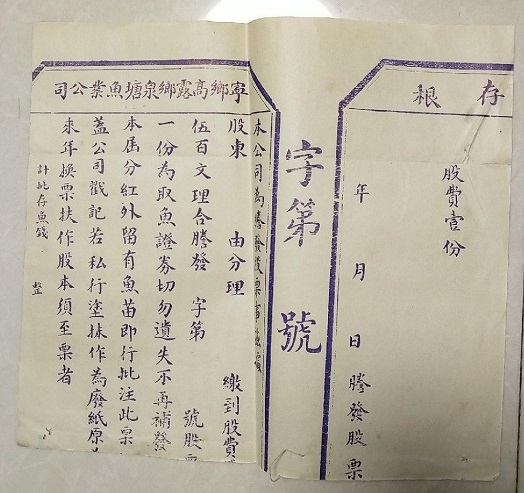 存根
股費壹份
年 月 日騰發股票
字第 號
寧鄉高露鄉泉塘魚業公司
本公司為騰發股票
股東 由分理 繳到股費
伍百文理合騰發 字第 號股票
一份為取魚證券切勿遺失不再補發
本屆分紅外留有魚苗即行批注此票
蓋公司戳記若私行塗抹作為廢紙原
來年換票扶作股本須至票者
計批存魚錢 整